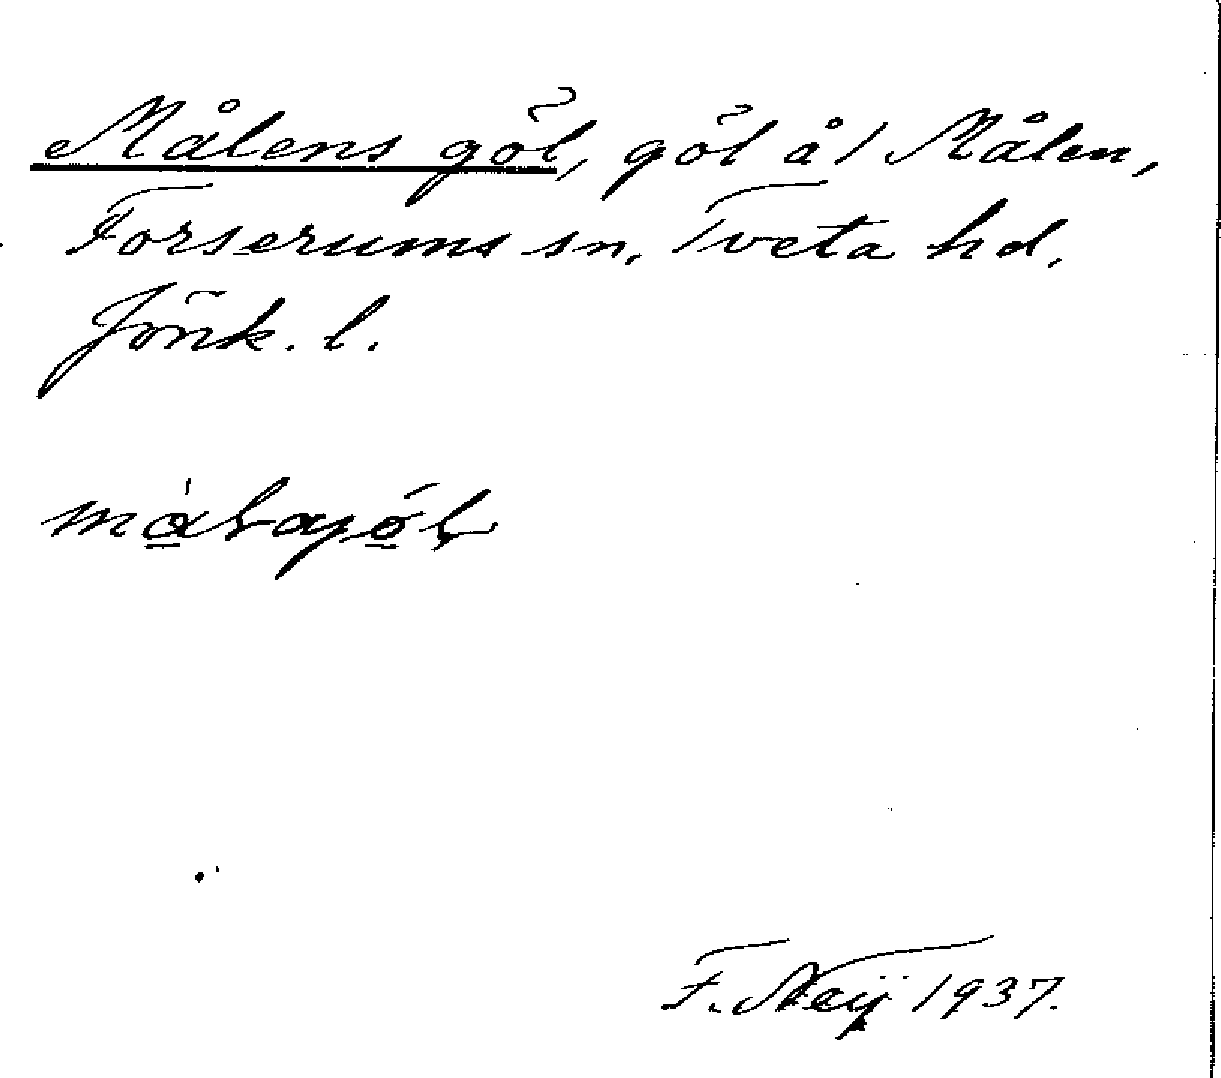 Målens göl, göl å 1 Målen,
Forserums sn, Tveta hd,
Jönk. l.
F. Neij 1937.